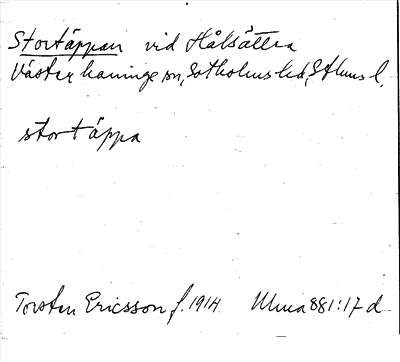 Stortäppan vid Hålsättra
Västerhaninge sn, Sotholms hd, Sthlms l.
stortäppa
Torsten Ericsson f. 1914 Ulma 881:17 d